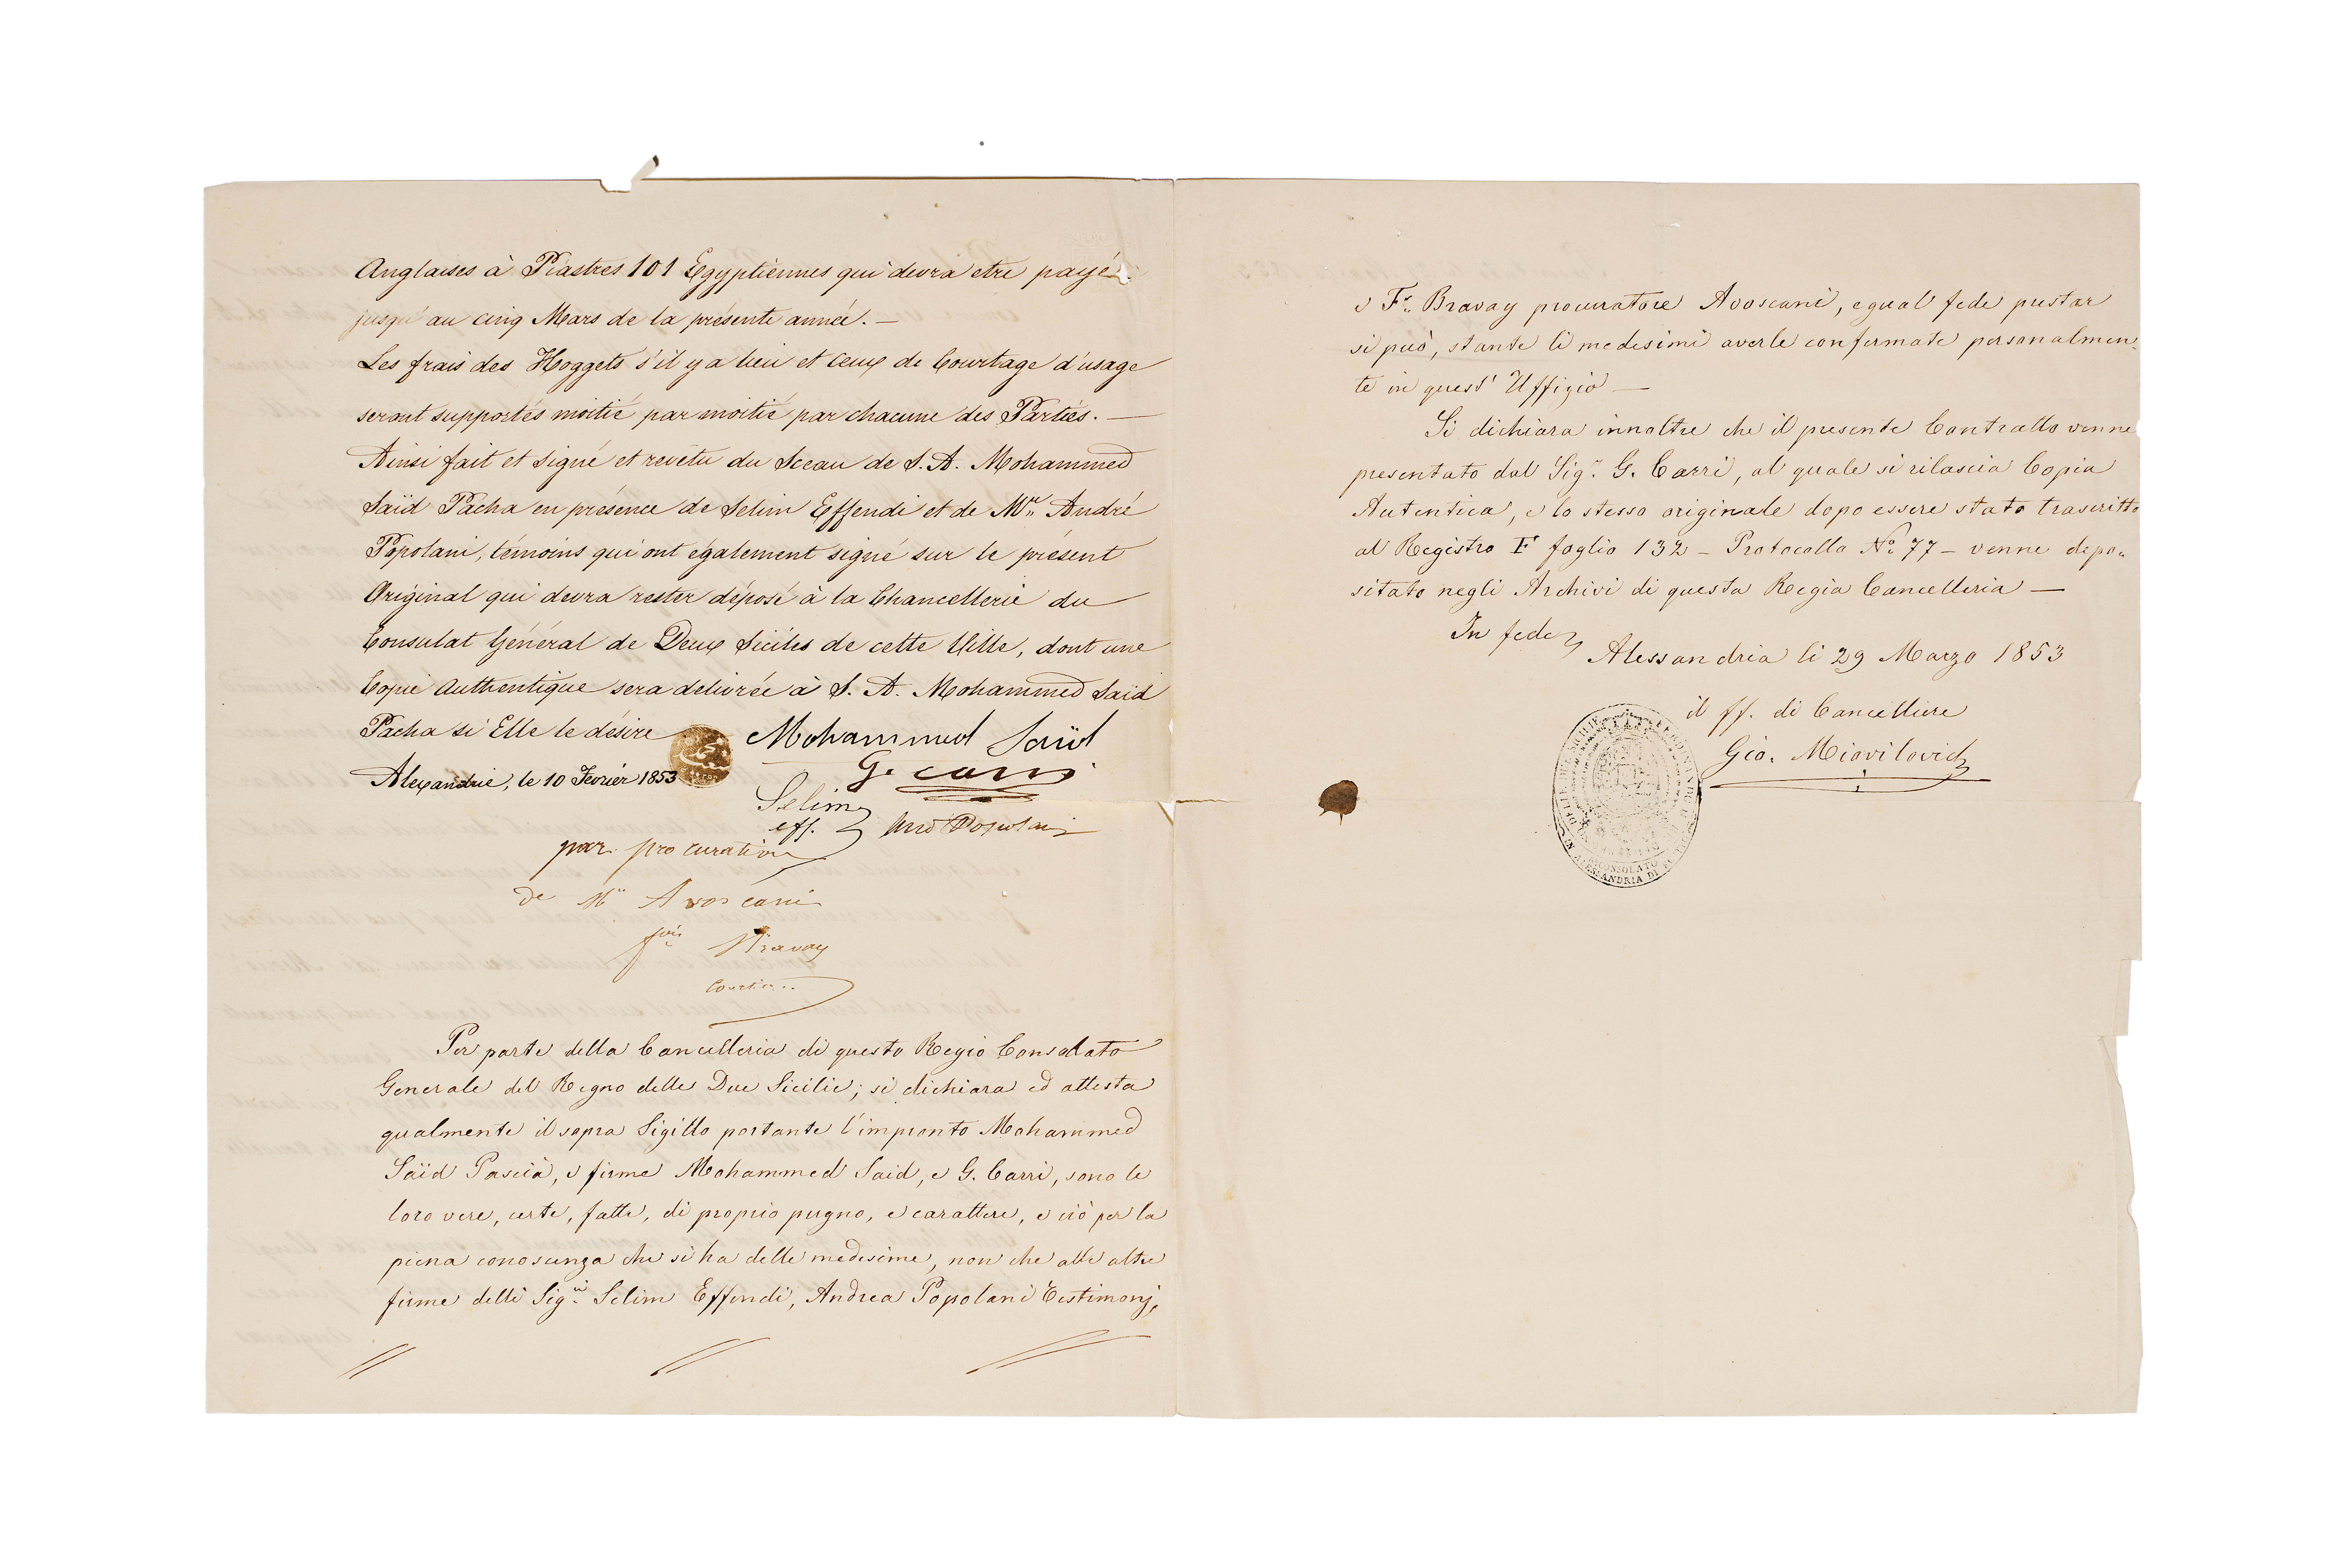 Anglaises à Piastres 101 Egyptiennes qui devra etre payé
jusqu'au cinq Mars de la présente année. —
Les frais des Hoggets s'il y a lieu et ceux de Courtage d'usage
seront supportés moitié par moitié par chacune des Parties. —
Ainsi fait et signé et revêtu du Sceau de S. A. Mohammed
Saïd Pacha en présence de Selim Effendi et de Mr. André
Popolani, témoins qui ont également signé sur le présent
Original qui devra rester déposé à la Chancellerie du
Consulat Général de Deux Siciles de cette Ville, dont une
Copie Authentique sera delivrée à S. A. Mohammed Saïd
Pacha si Elle le désire
Mohammed Saïd
Alexandrie, le 10 Fevrier 1853
G. Carri
Selim
eff.
And Popolani
par procuration
de Mr Avoscani
fois Bravay
Per parte della Cancelleria di questo Regio Consolato
Generale del Regno delle Due Sicilie; si dichiara ed attesta
qualmente il sopra Sigillo portante l'impronto Mohammed
Saïd Pascià, e firme Mohammed Said, e G. Carri, sono le
loro vere, certe, fatte, di proprio pugno, e carattere, e ciò per la
piena conoscenza che si ha delle medesime, non che alle altre
firme delli Sigri. Selim Effendi, Andrea Popolani Testimonj,
e Fs. Bravay procuratore Avoscani, egual fede prestar
si può, stante li medesimi averle confermate personalmen-
te in quest' Uffizio —
Si dichiara innoltre che il presente Contratto venne
presentato dal Sigr. G. Carri, al quale si rilascia Copia
Autentica, e lo stesso originale dopo essere stato trascritto
al Registro F foglio 132 — Protocollo No. 77 — venne depo=
sitato negli Archivi di questa Regia Cancelleria —
In fede
Alessandria li 29 Marzo 1853
il ff. di Cancelliere
Gio. Miovilovich